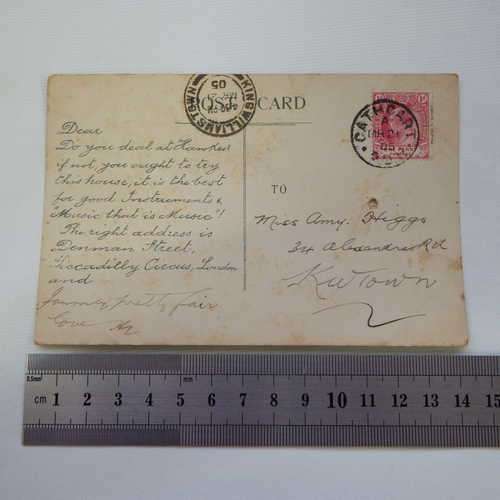 KINGWILLIAMSTOWN
05
POST CARD
CATHCART
A
MR 21
05
Dear
Do you deal at Hawkes
if not, you ought to try
this house, it is the best
for good Instruments &
"Music that is Music"!
The right address is
Denman Street,
Piccadilly Circus, London
and
Journey pretty fair
love
TO
Miss Amy. Higgs
34 Alexandra Rd
KW Town
0.5mm
5
mm
cm 1 2 3 4 5 6 7 8 9 10 11 12 13 14 15